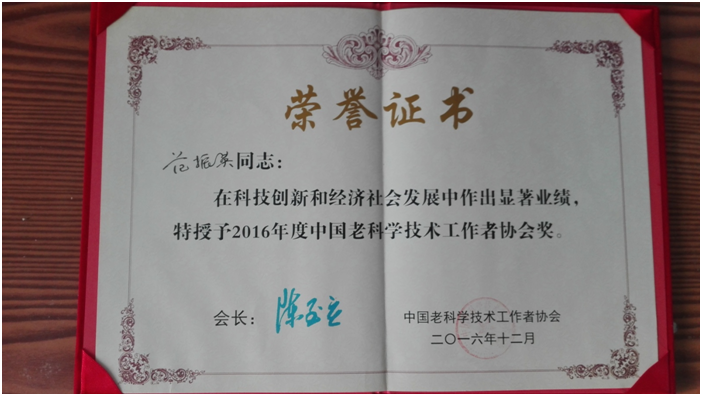 荣誉证书
范振英同志：
在科技创新和经济社会发展中作出显著业绩，
特授予2016年度中国老科学技术工作者协会奖。
会长：陈至立
中国老科学技术工作者协会
二〇一六年十二月